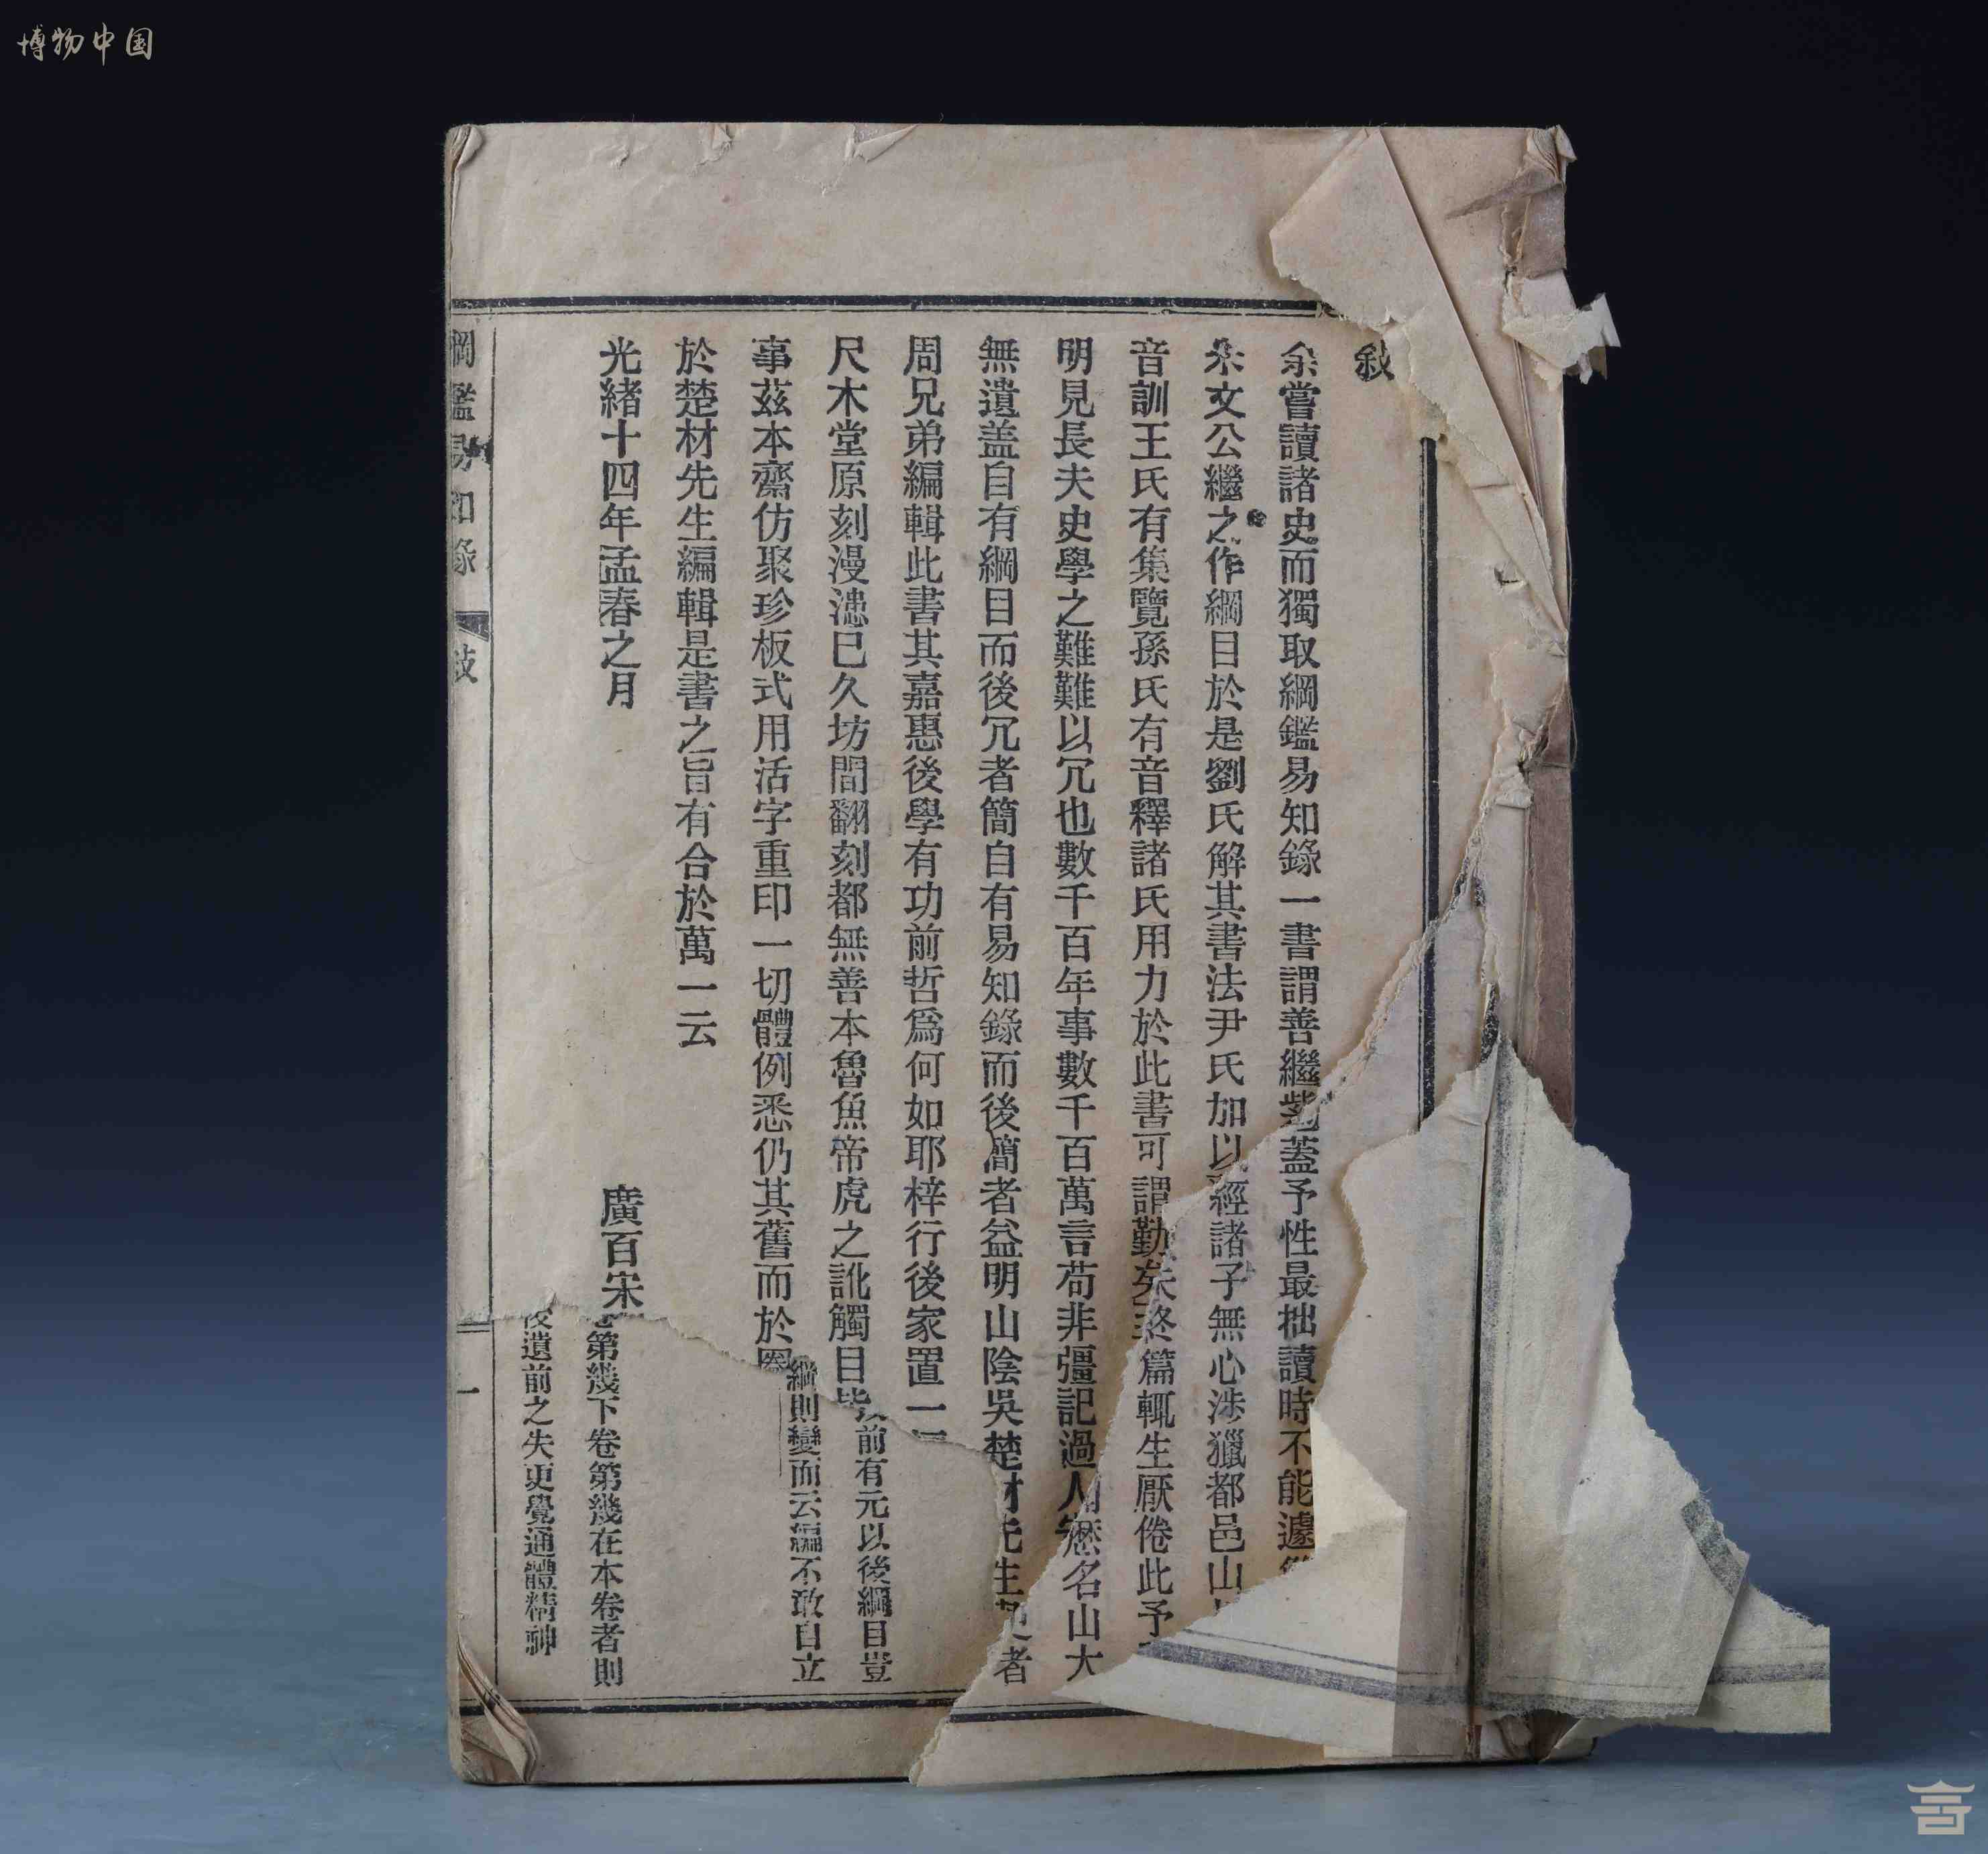 博物中国
敍
余嘗讀諸史而獨取綱鑑易知錄一書謂善繼紫蓋予性最拙讀時不能遽
朱文公繼之作綱目於是劉氏解其書法尹氏加以經諸子無心涉獵都邑山
音訓王氏有集覽孫氏有音釋諸氏用力於此書可謂勤矣終篇輒生厭倦此予
明見長夫史學之難難以冗也數千百年事數千百萬言苟非彊記過人歷名山大
無遺盖自有綱目而後冗者簡自有易知錄而後簡者益明山陰吳楚材先生者
周兄弟編輯此書其嘉惠後學有功前哲爲何如耶梓行後家置一
尺木堂原刻漫漶已久坊間翻刻都無善本魯魚帝虎之訛觸目皆前有元以後綱目豈
事茲本齋仿聚珍板式用活字重印一切體例悉仍其舊而於圈綱則變而云編不敢自立
於楚材先生編輯是書之旨有合於萬一云
光緒十四年孟春之月
廣百宋
第幾下卷第幾在本卷者則
後遺前之失更覺通體精神
綱鑑易知錄
敍
一